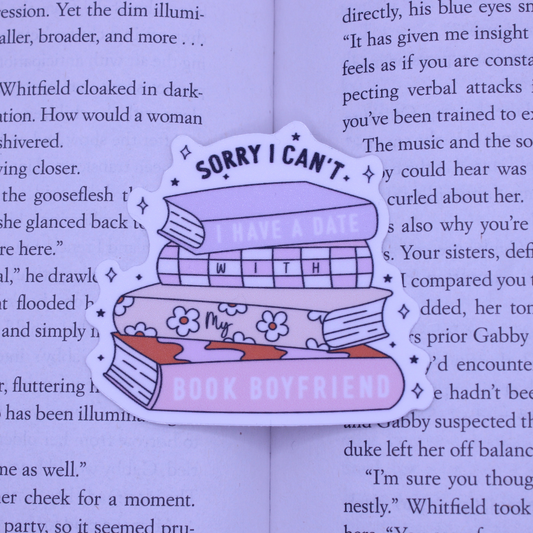 ession. Yet the dim illumi-
aller, broader, and more . . .
Whitfield cloaked in dark-
ation. How would a woman
shivered.
ving closer.
the gooseflesh
she glanced back
re here.”
al,” he drawl
flooded
and simply
r, fluttering
has been illumin
me as well.”
er cheek for a moment.
party, so it seemed pru-
SORRY I CAN'T
I HAVE A DATE
WITH
My
BOOK BOYFRIEND
directly, his blue eyes sm
“It has given me insight
feels as if you are consta
pecting verbal attacks
you’ve been trained to ex
The music and the so
by could hear was
curled about her.
s also why you’re
s. Your sisters, defi
I compared you t
dded, her ton
rs prior Gabby
y’d encounte
e hadn’t bee
and Gabby suspected th
duke left her off balanc
“I’m sure you thoug
nestly.” Whitfield took